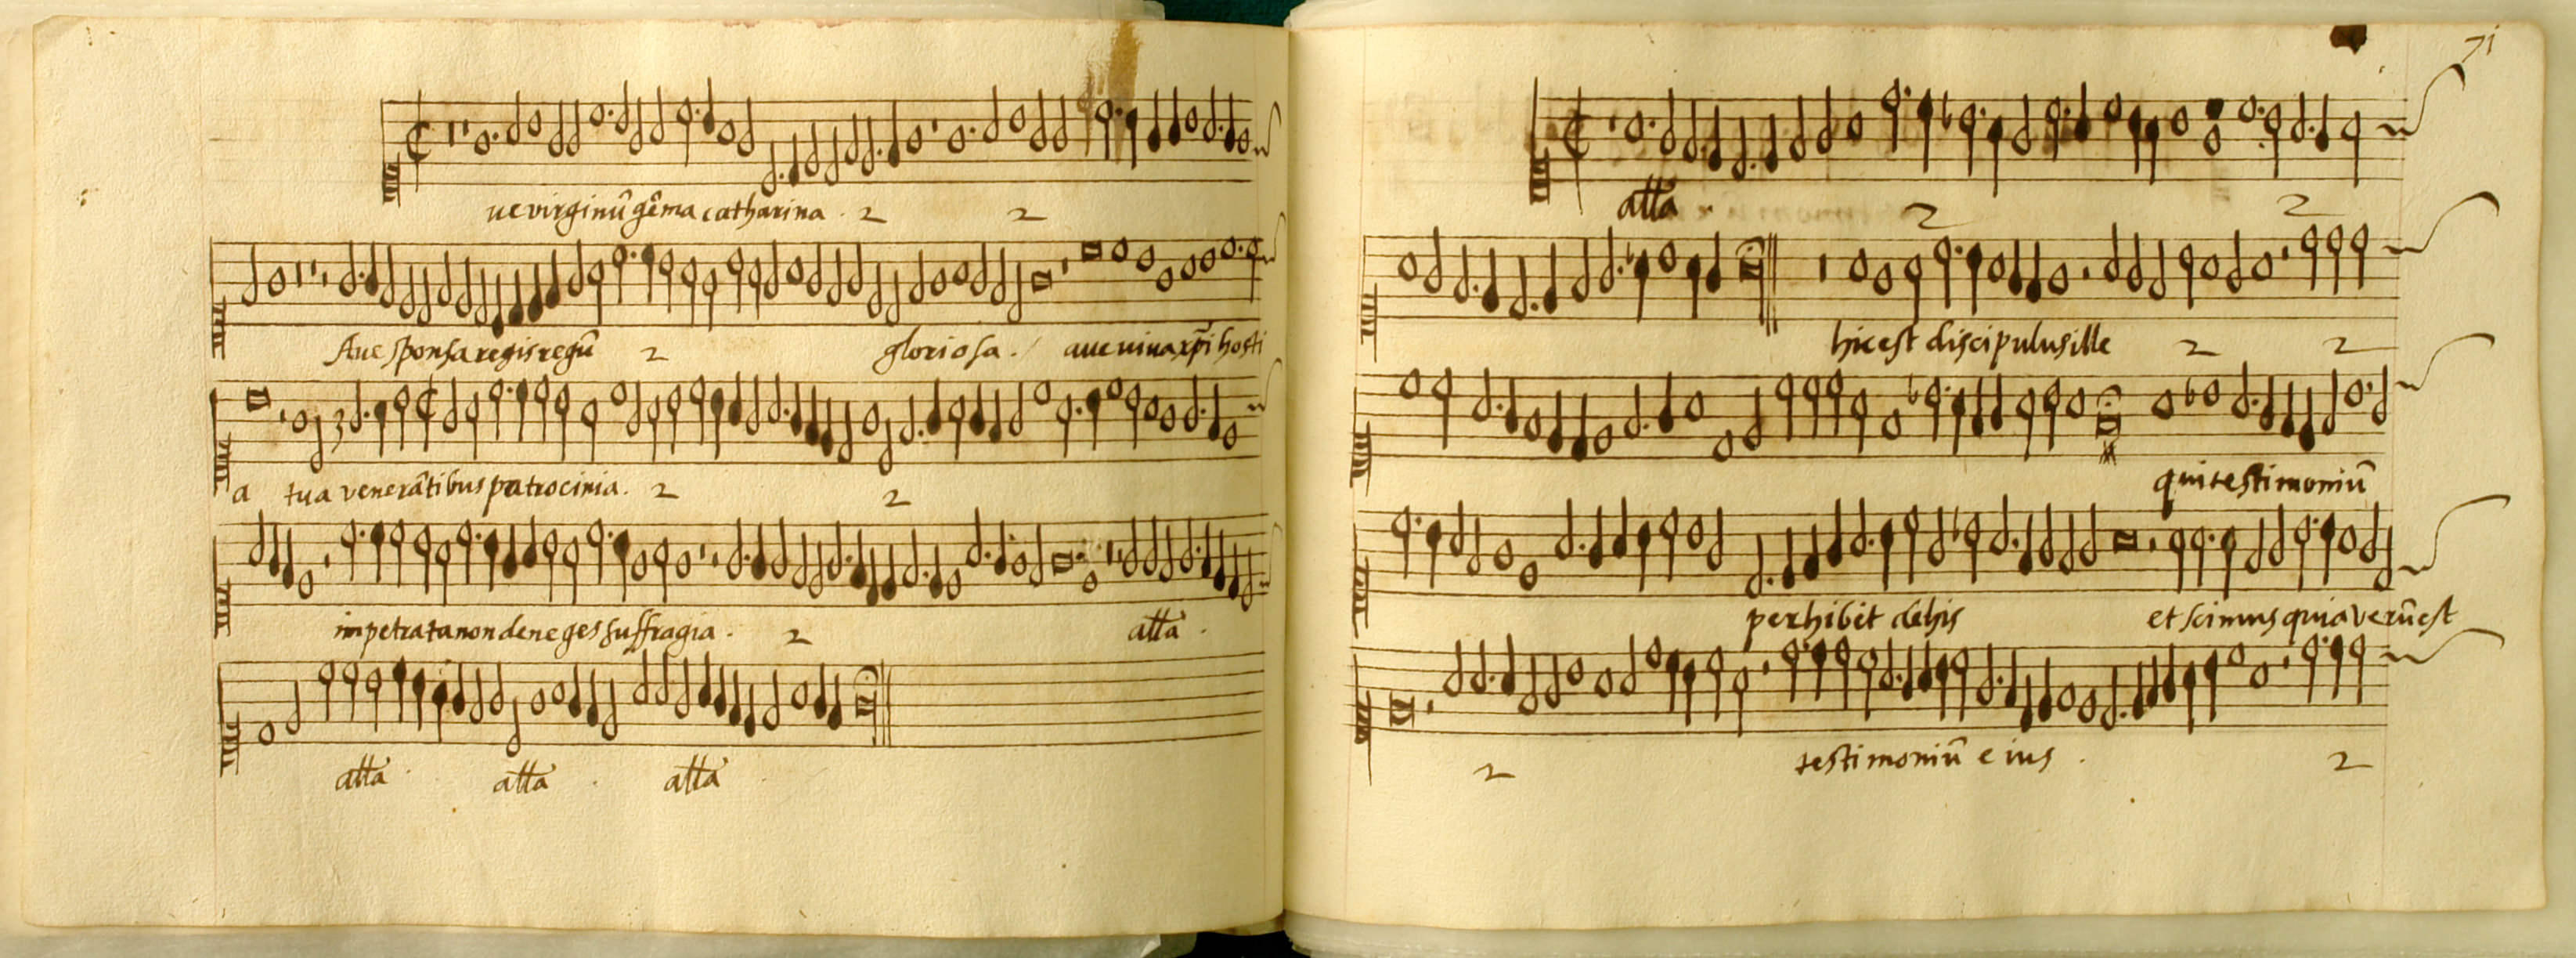 ue virginū gēma catharina . 2 2
Aue sponsa regis regū 2 gloriosa . aue uiua xp̄i hosti
a tua venerātibus patrocinia . 2 2
impetrata non deneges suffragia . 2 alła .
alła . alła . alła .
71
alła . 2 2
hic est discipulus ille 2 2
qui testimoniū
perhibet de his et scimus quia verū est
2 testimoniū eius . 2